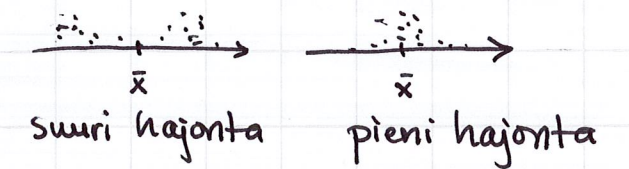 x̄ x̄
suuri hajonta pieni hajonta